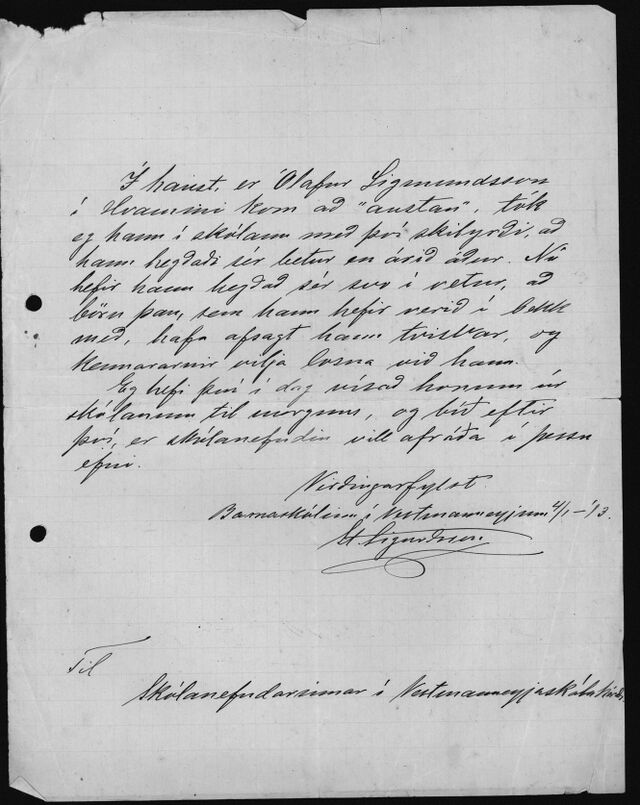 Í haust, er Ólafur Sigmundsson
í Hvammi kom að "austan", tók
eg hann í skólann með því skilyrði, að
hann hegðaði sér betur en árið áður. Nú
hefir hann hegðað sér svo í vetur, að
börn þau, sem hann hefir verið í bekk
með, hafa afsagt hann tvisvar, og
kennararnir vilja losna við hann.
Eg hefi því í dag vísað honum úr
skólanum til morguns, og bíð eftir
því, er skólanefndin vill afráða í þessu
efni.
Virðingarfylst.
Barnaskólinn í Vestmannaeyjum 4/1-'13.
St Sigurðsson.
Til
Skólanefndarinnar í Vestmannaeyjaskóla